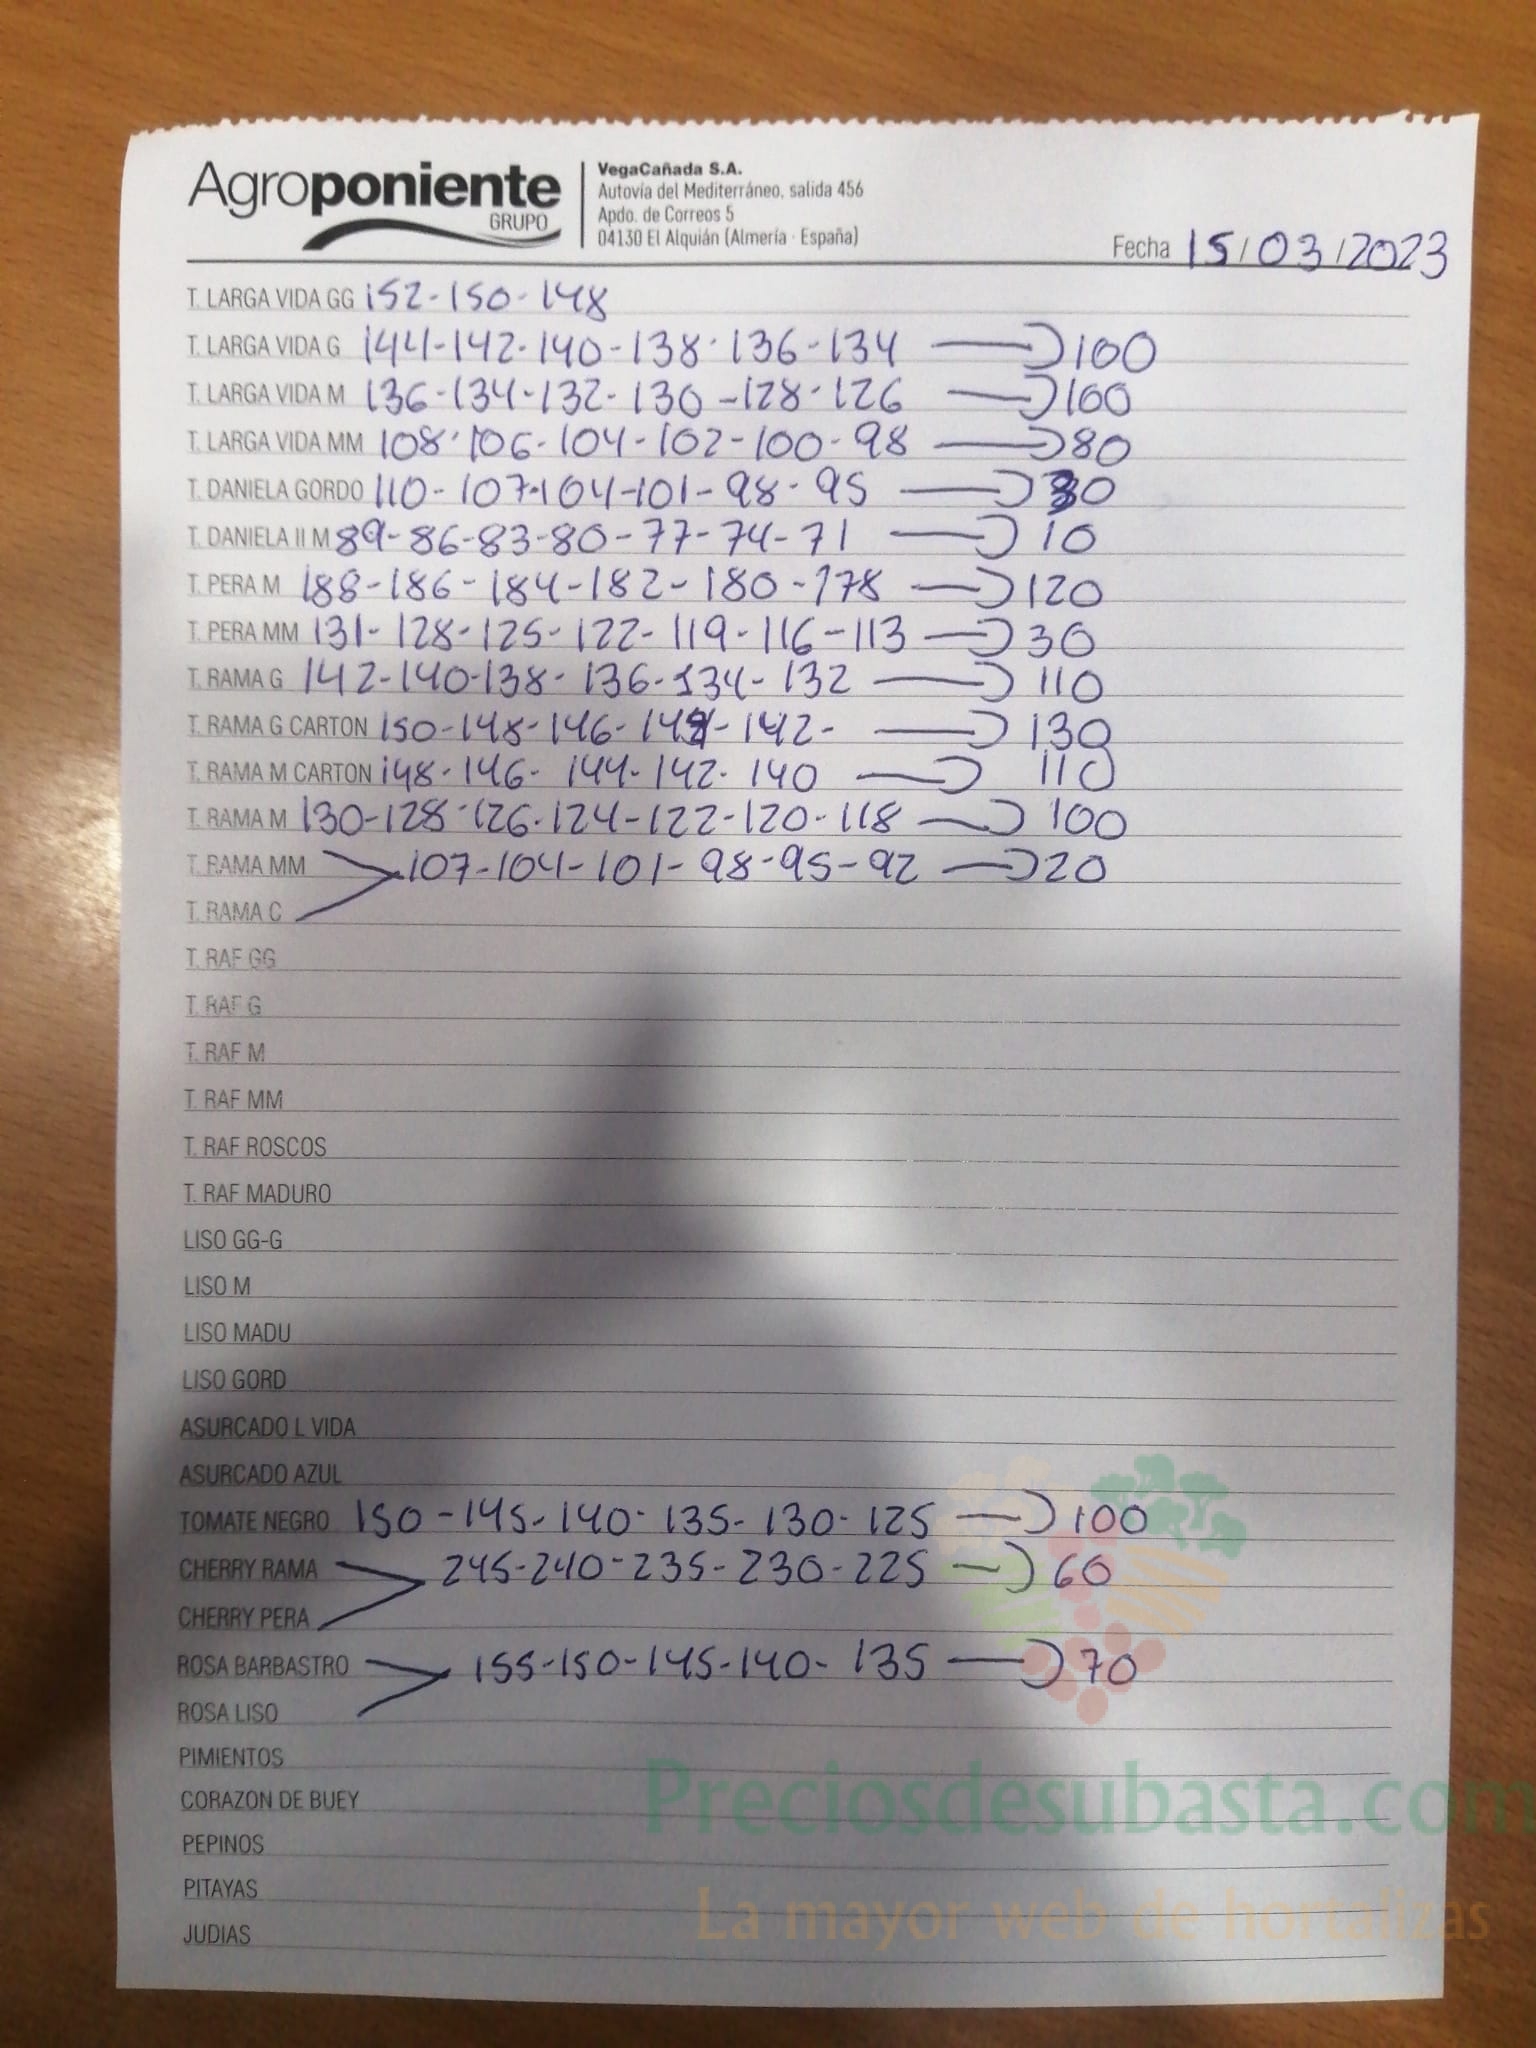 Agroponiente
GRUPO
VegaCañada S.A.
Autovía del Mediterráneo, salida 456
Apdo. de Correos 5
04130 El Alquián (Almería · España)
Fecha 15/03/2023
T. LARGA VIDA GG 152-150-148
T. LARGA VIDA G 144-142-140-138-136-134 100
T. LARGA VIDA M 136-134-132-130-128-126 100
T. LARGA VIDA MM 108-106-104-102-100-98 80
T. DANIELA GORDO 110-107-104-101-98-95 30
T. DANIELA II M 89-86-83-80-77-74-71 10
T. PERA M 188-186-184-182-180-178 120
T. PERA MM 131-128-125-122-119-116-113 30
T. RAMA G 142-140-138-136-134-132 110
T. RAMA G CARTON 150-148-146-144-142- 130
T. RAMA M CARTON 148-146-144-142-140 110
T. RAMA M 130-128-126-124-122-120-118 100
T. RAMA MM 107-104-101-98-95-92 20
T. RAMA C
T. RAF GG
T. RAF G
T. RAF M
T. RAF MM
T. RAF ROSCOS
T. RAF MADURO
LISO GG-G
LISO M
LISO MADU
LISO GORD
ASURCADO L VIDA
ASURCADO AZUL
TOMATE NEGRO 150-145-140-135-130-125 100
CHERRY RAMA 245-240-235-230-225 60
CHERRY PERA
ROSA BARBASTRO 155-150-145-140-135 70
ROSA LISO
PIMIENTOS
CORAZON DE BUEY
PEPINOS
PITAYAS
JUDIAS
Preciosdesubasta.com
La mayor web de hortalizas